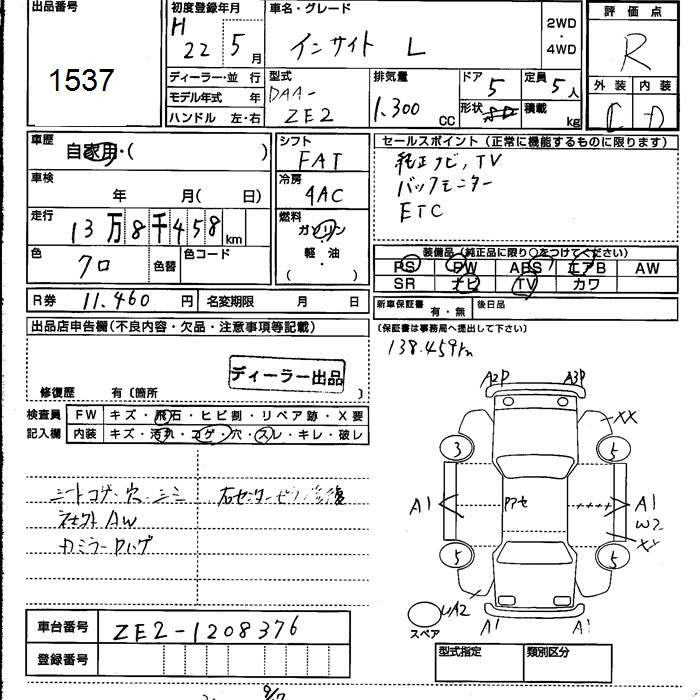 出品番号
1537
初度登録年月
H 22 5月
車名・グレード
インサイト L
2WD・4WD
評価点
R
外装 内装
C D
ディーラー・並行
モデル年式 年
ハンドル 左・右
型式
DAA-
ZE2
排気量
1.300 CC
ドア
5
定員
5人
形状
積載
kg
車歴
自家用・( )
車検
年 月( 日)
走行
13万8千458km
色
クロ
色替
色コード
シフト
FAT
冷房
4AC
燃料
ガソリン
軽・油
・( )
セールスポイント(正常に機能するものに限ります)
純正ナビ,TV
バックモニター
ETC
装備品(純正品に限り○をつけてください)
PS PW ABS エアB AW
SR ナビ TV カワ
R券 11.460円
名変期限 月 日
新車保証書 有・無
後日品
(保証書は事務局へ提出して下さい)
138.459km
出品店申告欄(不良内容・欠品・注意事項等記載)
ディーラー出品
修復歴 有〔箇所 〕
検査員記入欄
FW キズ・飛石・ヒビ割・リペア跡・X要
内装 キズ・汚れ・コゲ・穴・スレ・キレ・破レ
シートコゲ・穴・シミ
社外AW
カミラーハゲ
A2P A3P
XX
3 5
A1 A1
W2
5 5
UA2
A1 A1
スペア
車台番号 ZE2-1208376
登録番号
型式指定 類別区分